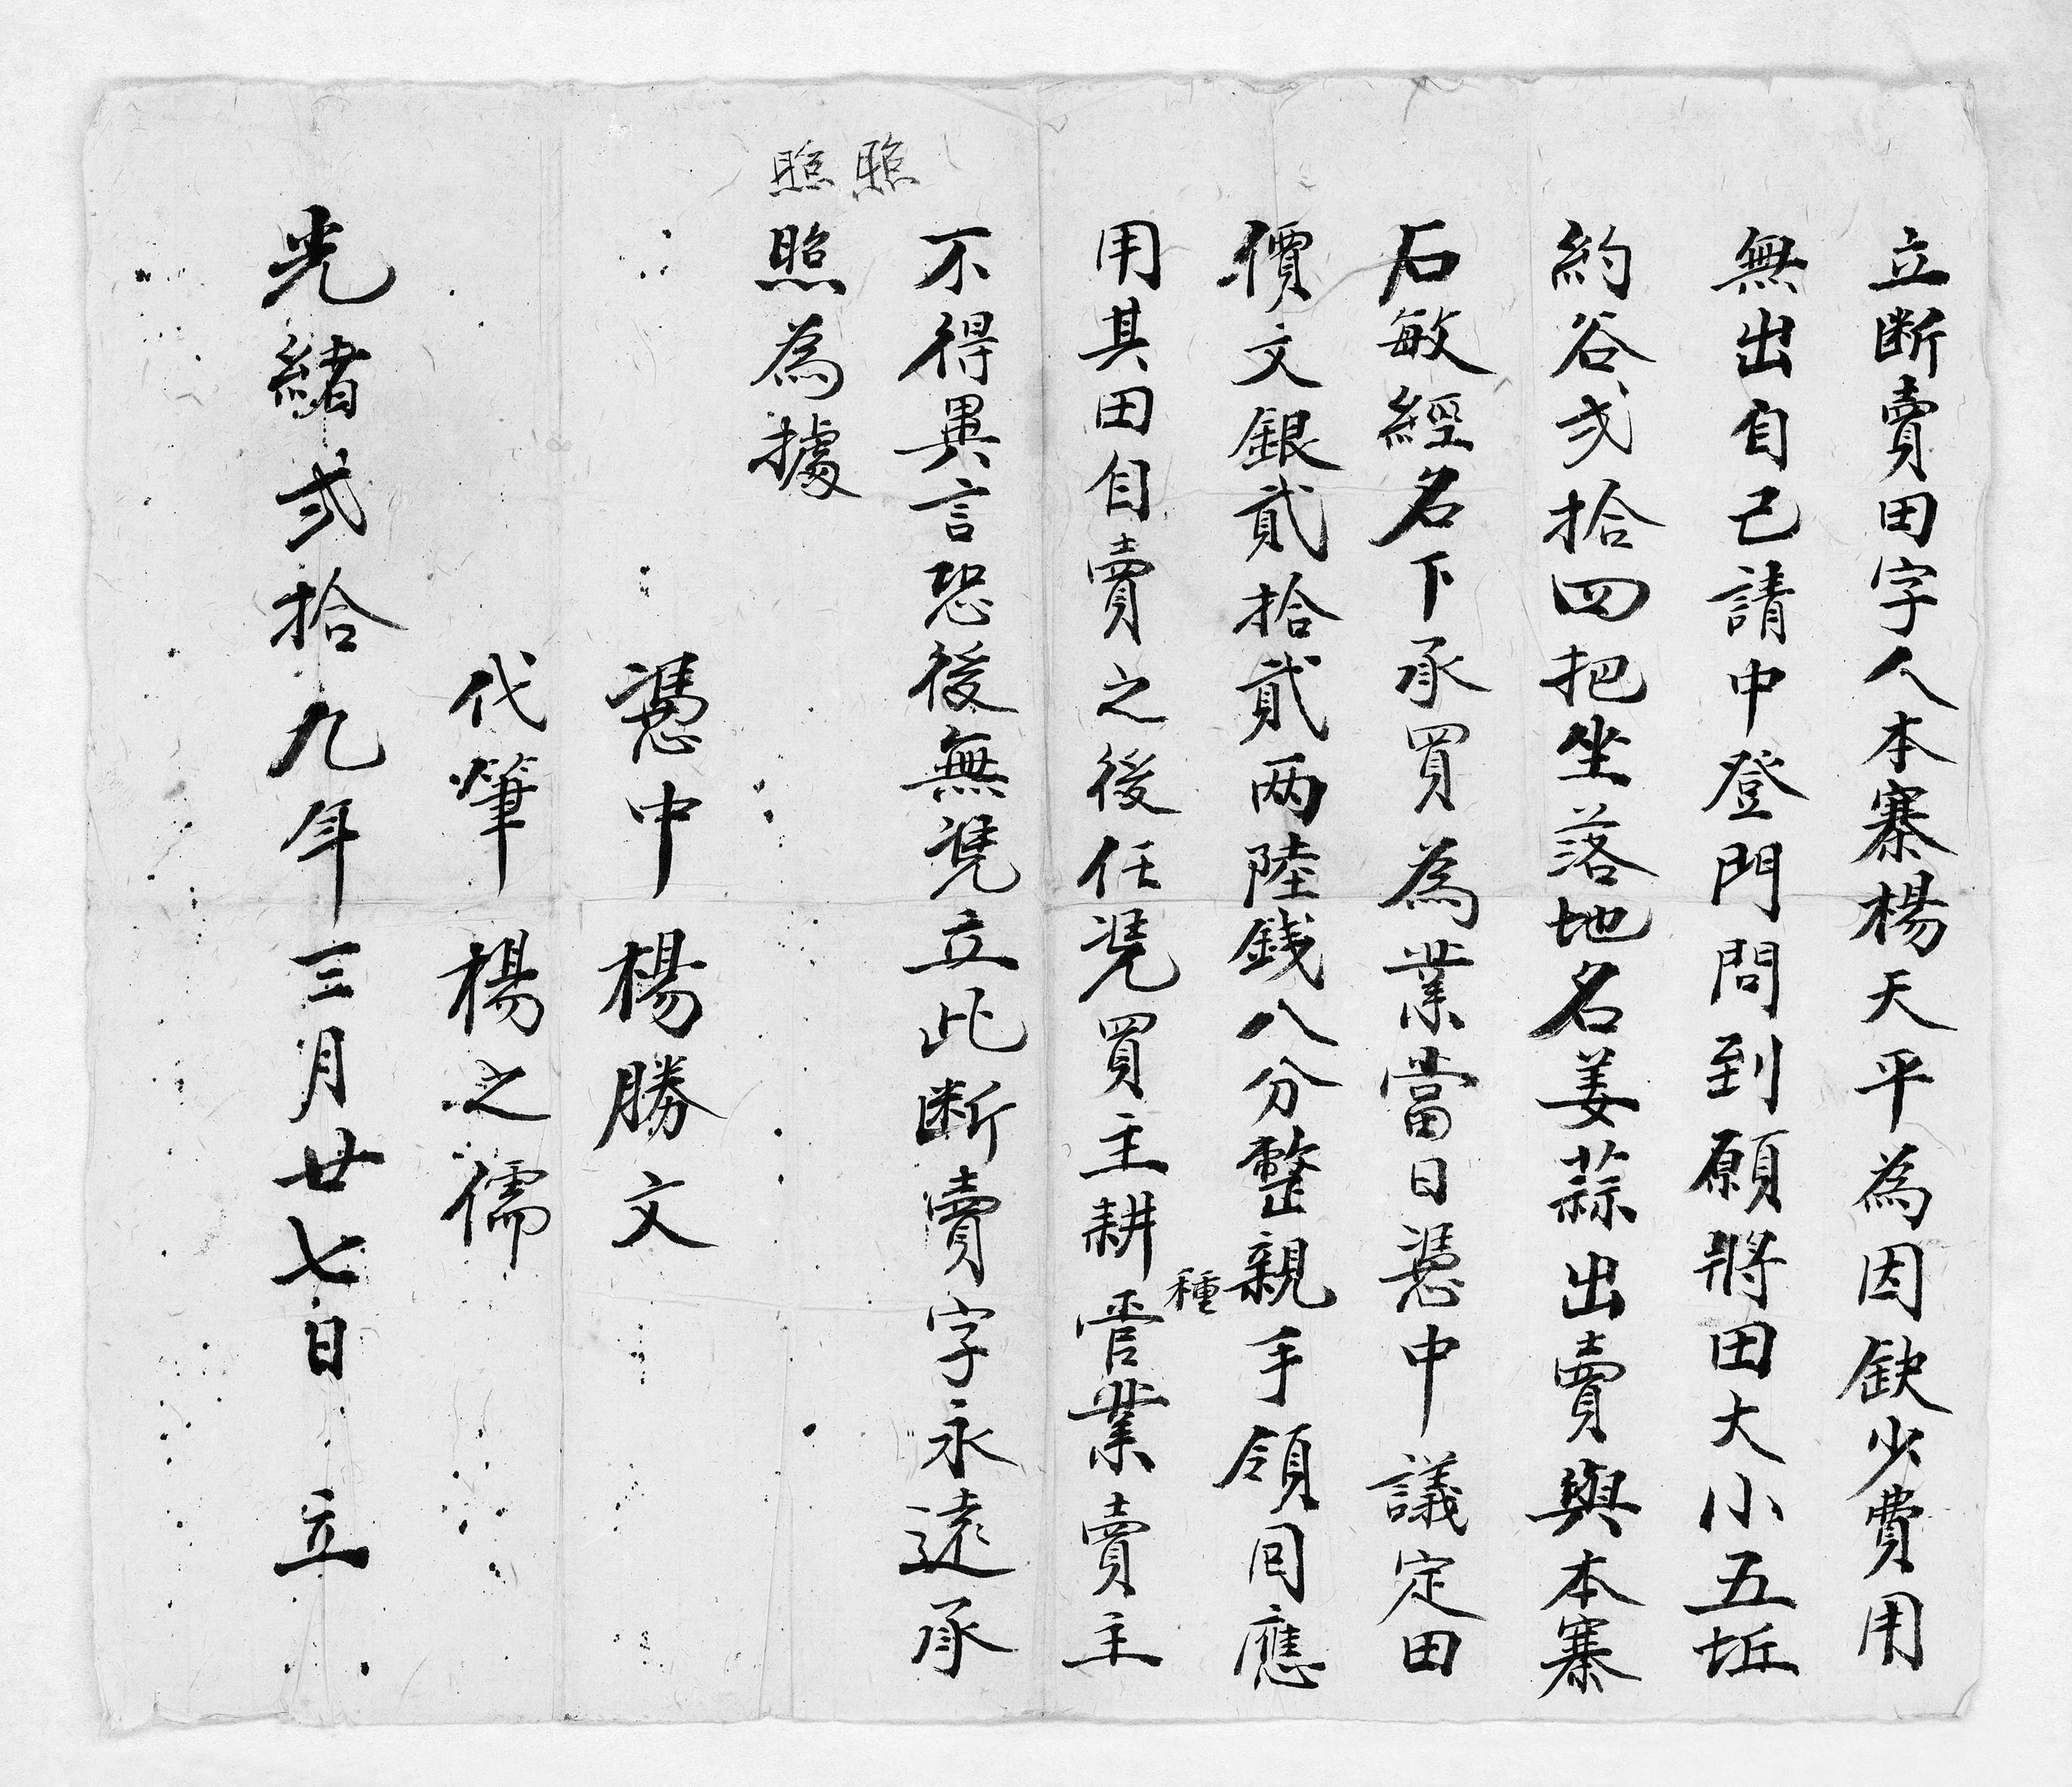 立断賣田字人本寨楊天平為因缺少費用
無出自己請中登門問到願將田大小五坵
約谷弍拾四把坐落地名姜蒜出賣與本寨
石敏經名下承買為業當日憑中議定田
價文銀貳拾貳两陸銭八分整親手領囘應
用其田自賣之後任凴買主耕種管業賣主
不得異言恐後無凴立此断賣字永遠承
照照
照為據
憑中楊勝文
代筆楊之儒
光緒弍拾九年三月廿七日立